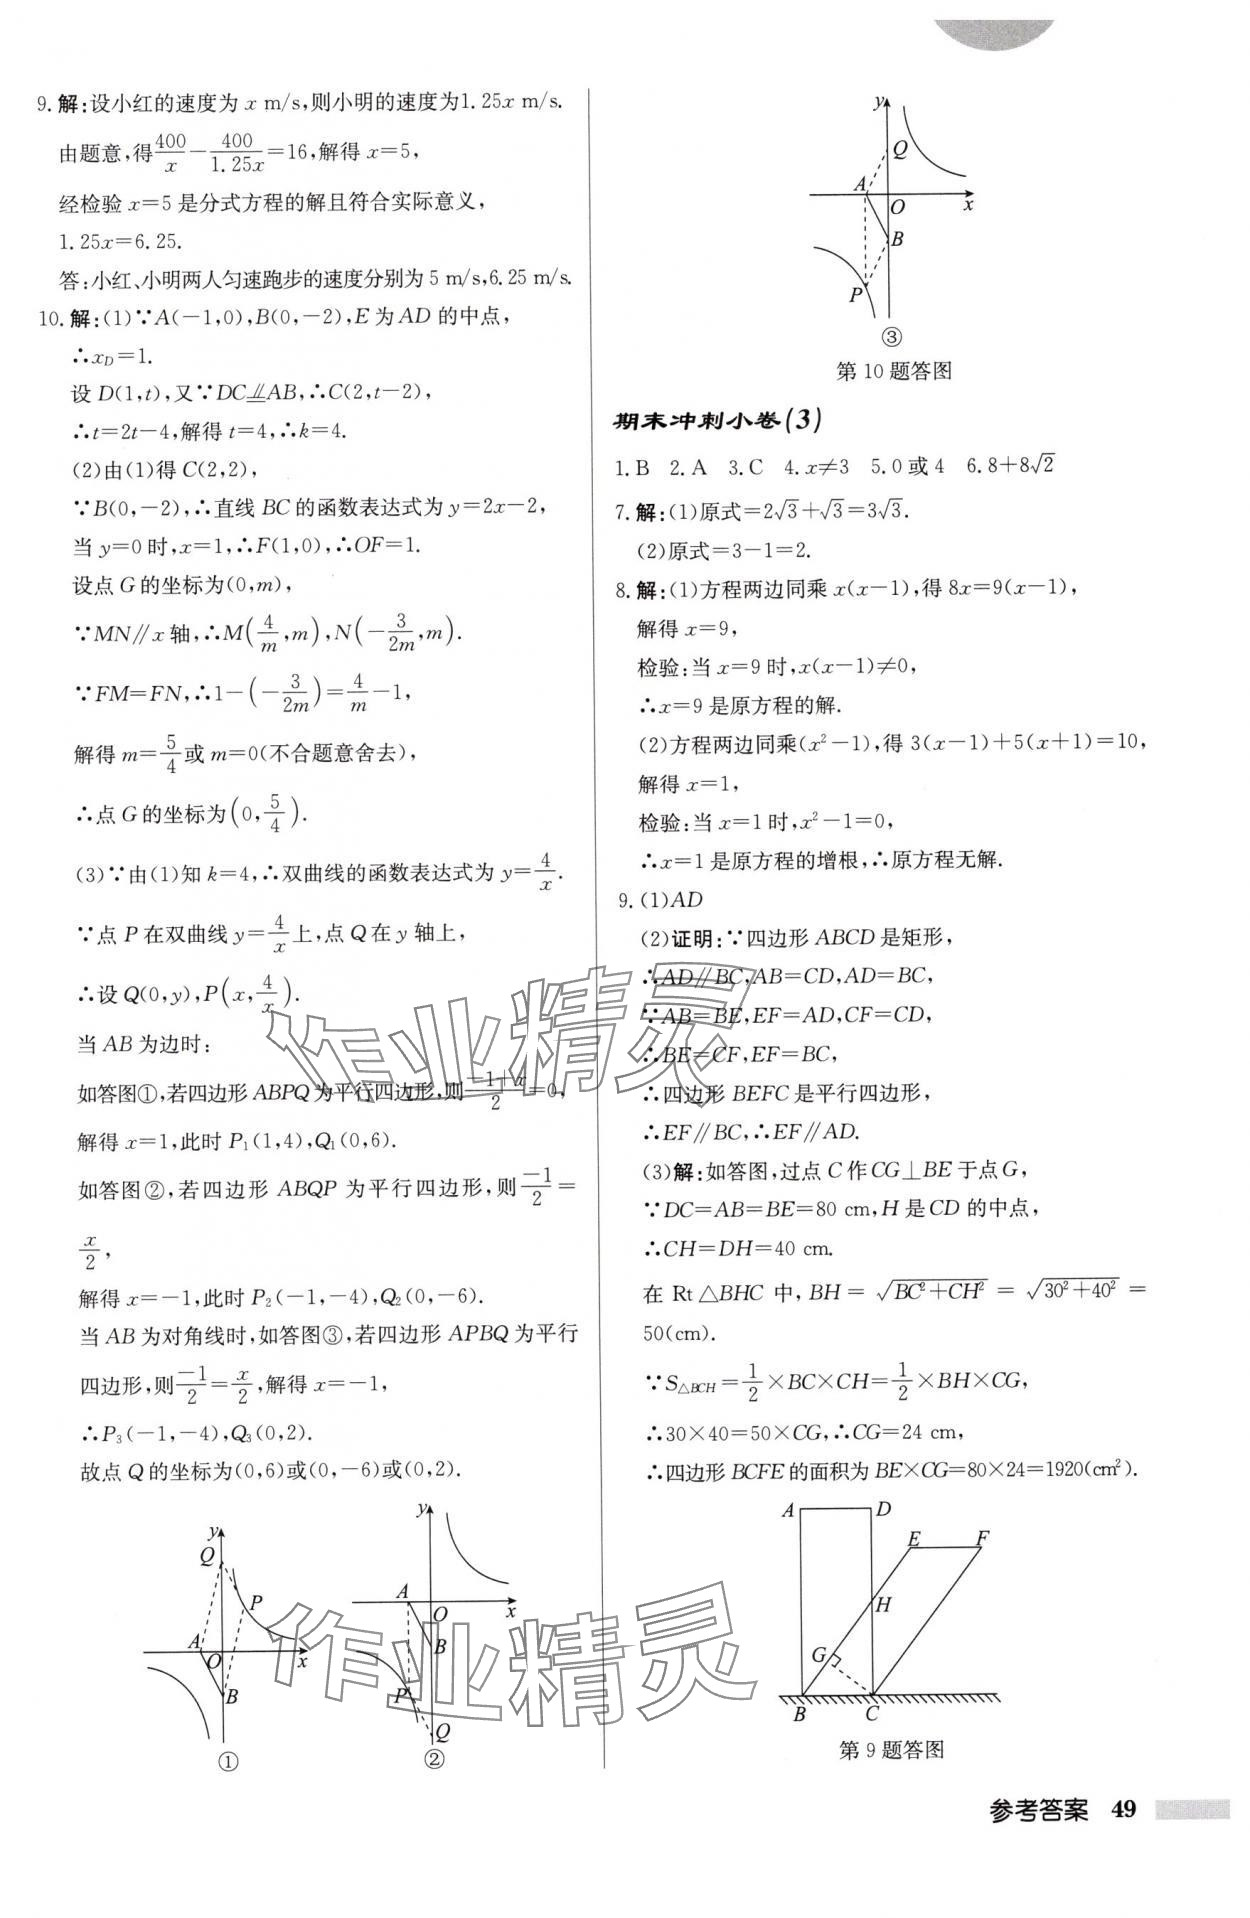 9. 解:设小红的速度为 x m/s,则小明的速度为1.25x m/s.
由题意,得400/x－400/1.25x＝16,解得 x＝5,
经检验 x＝5 是分式方程的解且符合实际意义,
1.25x＝6.25.
答:小红、小明两人匀速跑步的速度分别为 5 m/s,6.25 m/s.
10. 解:(1)∵A(－1,0),B(0,－2),E 为 AD 的中点,
∴x_D＝1.
设 D(1,t),又∵DC⫽AB,∴C(2,t－2),
∴t＝2t－4,解得 t＝4,∴k＝4.
(2)由(1)得 C(2,2),
∵B(0,－2),∴直线 BC 的函数表达式为 y＝2x－2,
当 y＝0 时,x＝1,∴F(1,0),∴OF＝1.
设点 G 的坐标为(0,m),
∵MN∥x 轴,∴M(4/m,m),N(－3/2m,m).
∵FM＝FN,∴1－(－3/2m)＝4/m－1,
解得 m＝5/4或 m＝0(不合题意舍去),
∴点 G 的坐标为(0,5/4).
(3)∵由(1)知 k＝4,∴双曲线的函数表达式为 y＝4/x.
∵点 P 在双曲线 y＝4/x上,点 Q 在 y 轴上,
∴设 Q(0,y),P(x,4/x).
当 AB 为边时:
如答图①,若四边形 ABPQ 为平行四边形,则(－1＋x)/2＝0,
解得 x＝1,此时 P₁(1,4),Q₁(0,6).
如答图②,若四边形 ABQP 为平行四边形,则－1/2＝
x/2,
解得 x＝－1,此时 P₂(－1,－4),Q₂(0,－6).
当 AB 为对角线时,如答图③,若四边形 APBQ 为平行
四边形,则－1/2＝x/2,解得 x＝－1,
∴P₃(－1,－4),Q₃(0,2).
故点 Q 的坐标为(0,6)或(0,－6)或(0,2).
y
Q
P
A
O
x
B
①
y
A
O
x
B
P
Q
②
y
Q
A
O
x
B
P
③
第 10 题答图
期末冲刺小卷(3)
1. B 2. A 3. C 4. x≠3 5. 0 或 4 6. 8＋8√2
7. 解:(1)原式＝2√3＋√3＝3√3.
(2)原式＝3－1＝2.
8. 解:(1)方程两边同乘 x(x－1),得 8x＝9(x－1),
解得 x＝9,
检验:当 x＝9 时,x(x－1)≠0,
∴x＝9 是原方程的解.
(2)方程两边同乘(x²－1),得 3(x－1)＋5(x＋1)＝10,
解得 x＝1,
检验:当 x＝1 时,x²－1＝0,
∴x＝1 是原方程的增根,∴原方程无解.
9. (1)AD
(2)证明:∵四边形 ABCD 是矩形,
∴AD∥BC,AB＝CD,AD＝BC,
∵AB＝BE,EF＝AD,CF＝CD,
∴BE＝CF,EF＝BC,
∴四边形 BEFC 是平行四边形,
∴EF∥BC,∴EF∥AD.
(3)解:如答图,过点 C 作 CG⊥BE 于点 G,
∵DC＝AB＝BE＝80 cm,H 是 CD 的中点,
∴CH＝DH＝40 cm.
在 Rt△BHC 中,BH＝√(BC²＋CH²)＝√(30²＋40²)＝
50(cm).
∵S△BCH＝1/2×BC×CH＝1/2×BH×CG,
∴30×40＝50×CG,∴CG＝24 cm,
∴四边形 BCFE 的面积为 BE×CG＝80×24＝1920(cm²).
A
D
E
F
H
G
B
C
第 9 题答图
作业精灵
作业精灵
参考答案 49